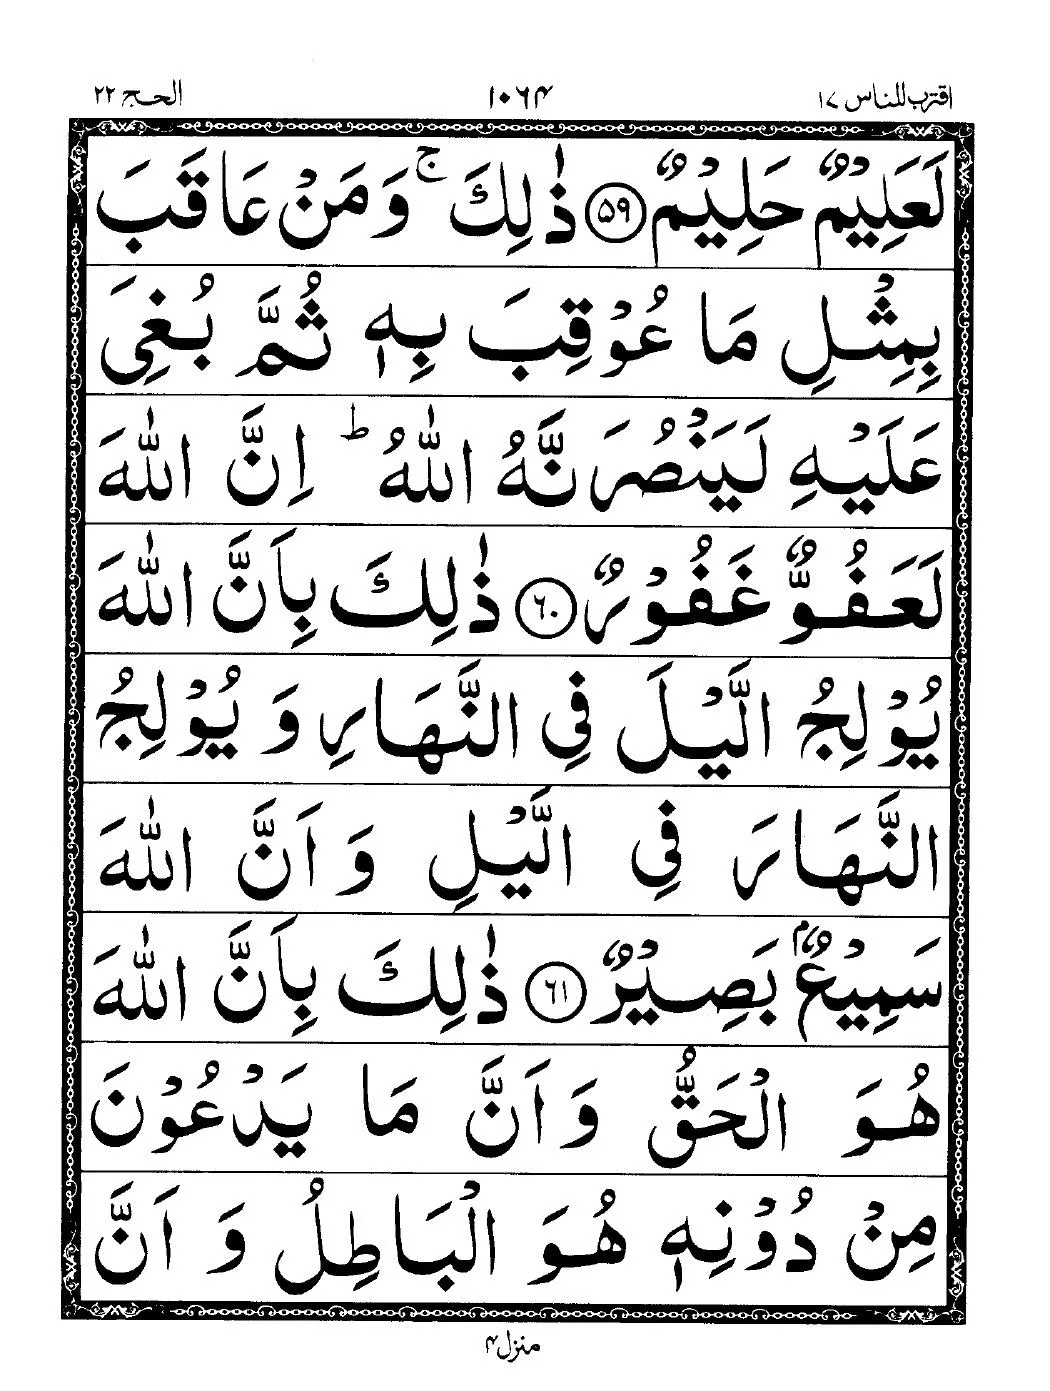 اقترب للناس ١٧ ١٠٦٤ الحج ٢٢
لَعَلِيْمٌ حَلِيْمٌ ﴿۵۹﴾ ذٰلِكَ ۚ وَمَنْ عَاقَبَ
بِمِثْلِ مَا عُوْقِبَ بِهٖ ثُمَّ بُغِیَ
عَلَيْهِ لَيَنْصُرَنَّهُ اللّٰهُ ؕ اِنَّ اللّٰهَ
لَعَفُوٌّ غَفُوْرٌ ﴿۶۰﴾ ذٰلِكَ بِاَنَّ اللّٰهَ
يُوْلِجُ الَّيْلَ فِی النَّهَارِ وَ يُوْلِجُ
النَّهَارَ فِی الَّيْلِ وَ اَنَّ اللّٰهَ
سَمِيْعٌۢ بَصِيْرٌ ﴿۶۱﴾ ذٰلِكَ بِاَنَّ اللّٰهَ
هُوَ الْحَقُّ وَ اَنَّ مَا يَدْعُوْنَ
مِنْ دُوْنِهٖ هُوَ الْبَاطِلُ وَ اَنَّ
منزل ۴